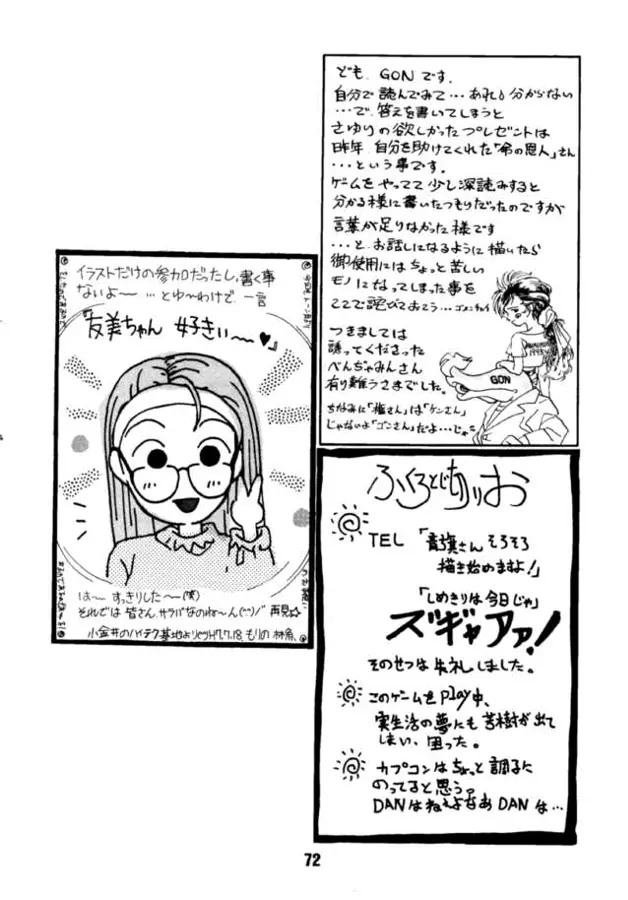 ども、GONです。
自分で読んでみて…あれも分からない
…で、答えを書いてしまうと
さゆりの欲しかったプレゼントは
昨年、自分を助けてくれた「命の恩人」さん
…という事です。
ゲームをやってて少し深読みすると
分かる様に書いたつもりだったのですが
言葉が足りなかった様です
…と、お話しになるように描いたら
御使用にはちょっと苦しい
モノになってしまった事を
ここで詫びておこう…ゴメンナサイ
つきましては
誘ってくださった
べんぢゃみんさん
有り難うさまでした。
ちなみに「権さん」は「ケンさん」
じゃないよ「ゴンさん」だよ…じゃ
GON
イラストだけの参加だったし、書く事
ないよ〜 …とゆ〜わけで 一言
『友美ちゃん 好きぃ〜♥』
は〜 すっきりした〜(笑)
それでは皆さん、サラバなのね〜ん(^^)ノ゛再見☆
小金井のハイテク基地より H7.7.18. もりの
ふくろとじありお
TEL 「青旗さんそろそろ
描き始めますよ!」
「しめきりは今日じゃ」
ズギャアァ!
そのせつは失礼しました。
このゲームをplay中、
実生活の夢にも苦樹が出て
しまい、困った。
カプコンはちょっと調子に
のってると思うっ
DANはねぇよなあDANは…
72